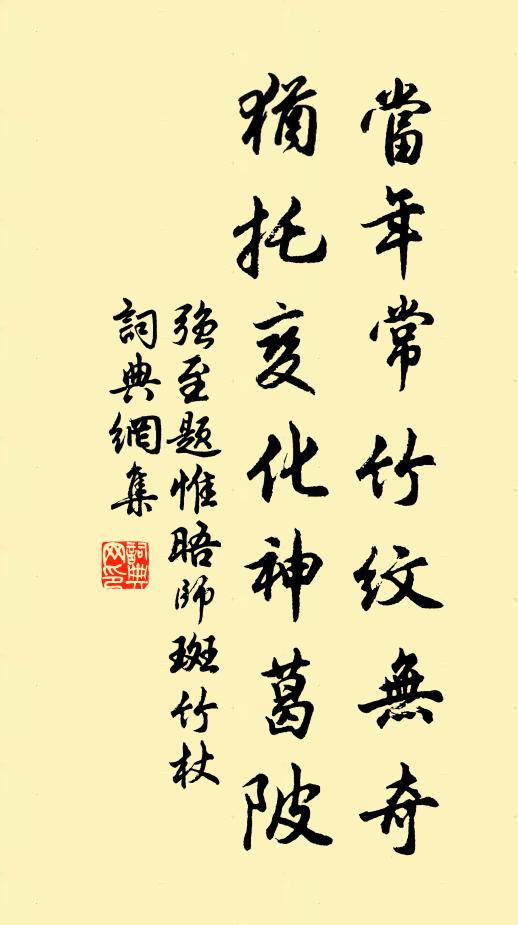 當年常竹紋無奇
猶托变化神葛陂
强至題惟晤師斑竹杖
詞典網集
詞典網印